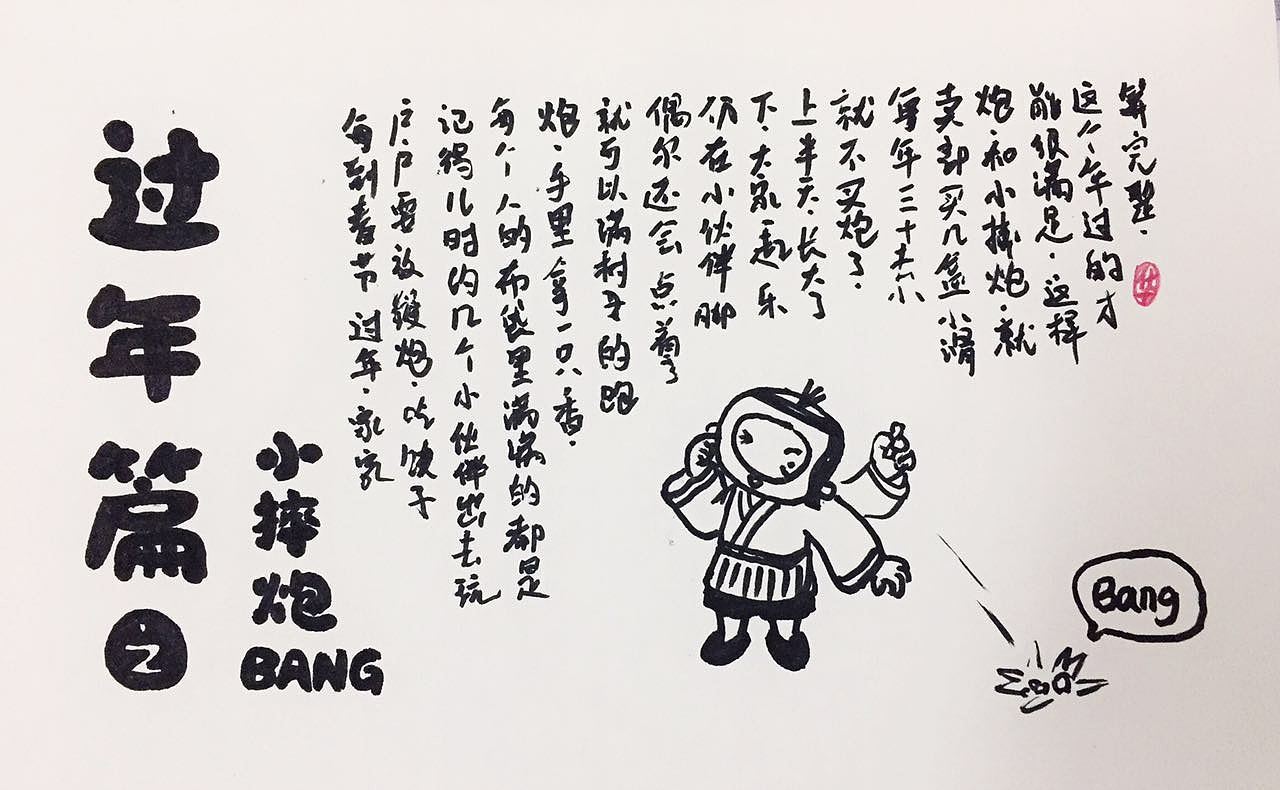 过年篇之
小摔炮
BANG
每到春节过年.家家
户户要放鞭炮.吃饺子
记得儿时约几个小伙伴出去玩
每个人的布袋里满满的都是
炮.手里拿一只香.
就可以满村子的跑
偶尔还会点着了
仍在小伙伴脚
下.大家一起乐
上半天.长大了
就不买炮了.
每年三十
卖却买几盒小滑
炮.和小摔炮.就
能很满足.这样
这个年过的才
算完整.
Bang